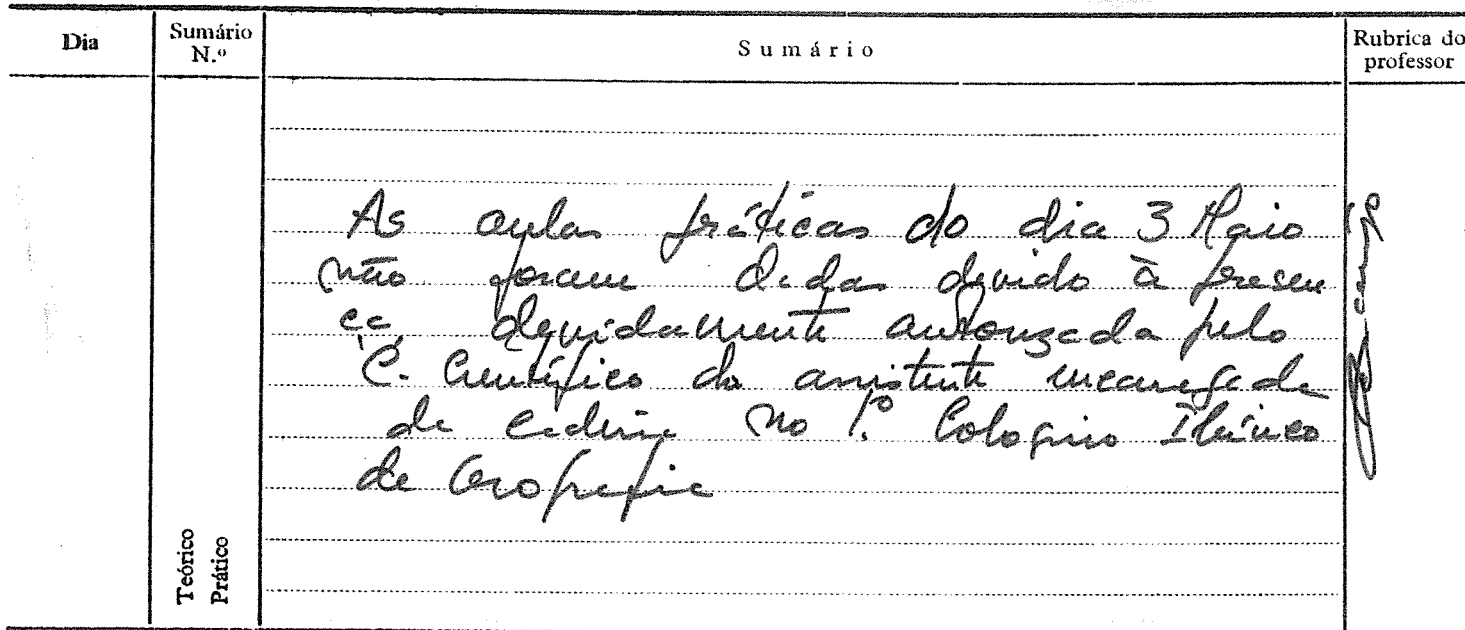 Dia
Sumário N.º
Sumário
Rubrica do professor
As aulas práticas do dia 3 Maio
não foram dadas devido à presen
ça, devidamente autorizada pelo
C. Científico do assistente encarregado
da cadeira no 1.º Coloquio Ibérico
de Geografia
Teórico
Prático